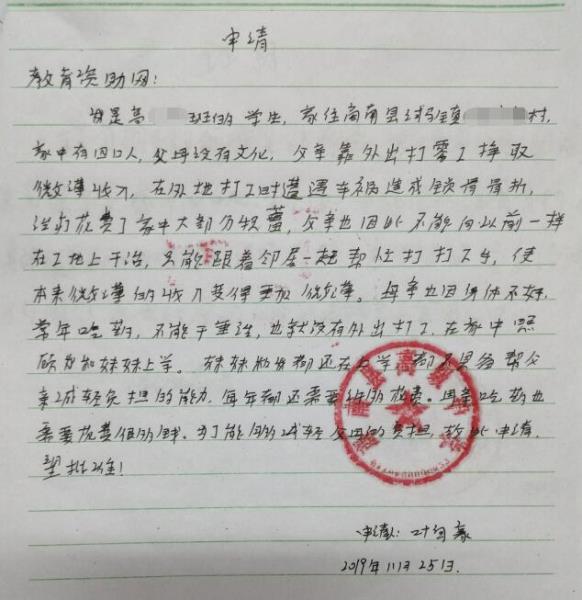 申请
教育资助网：
我是高 班的学生，家住商南县 镇 村，
家中有四口人，父母没有文化，父亲靠外出打零工挣取
微薄收入，在外地打工时遭遇车祸造成锁骨骨折，
治疗花费了家中大部分积蓄，父亲也因此不能向以前一样
在工地上干活，只能跟着邻居一起帮忙打打下手，使
本来微薄的收入变得更加微薄。母亲也因身体不好，
常年吃药，不能干重活，也就没有外出打工，在家中照
顾我和妹妹上学。妹妹和我都还在上学，都不具备帮父
亲减轻负担的能力，每年都还需要 的花费。母亲吃药也
需要花费很多钱。为了能够减轻父母的负担，故此申请，
望批准！
申请人：叶
2019年11月25日.